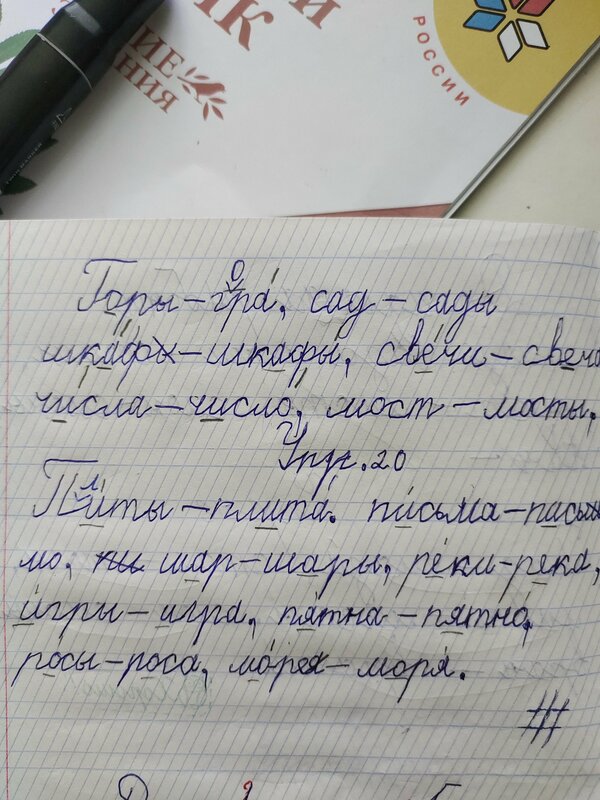 ИК
НИЕ
АНИЯ
РОССИИ
Горы – гора, сад – сады
шкаф – шкафы, свечи – свеча
числа – число, мост – мосты.
Упр. 20
Плиты – плита. письма – пись
мо, шар – шары, реки – река,
игры – игра, пятна – пятно,
росы – роса, море – моря.